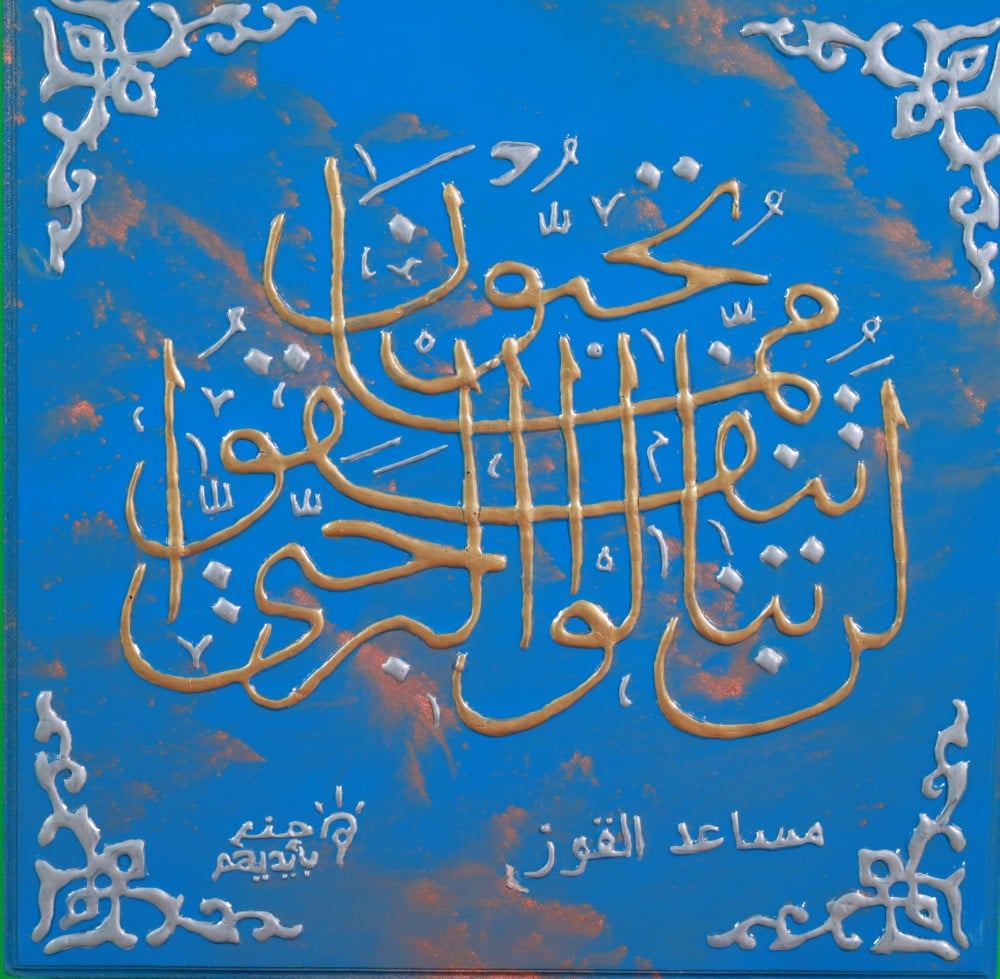 لن تنالوا البر حتى تنفقوا مما تحبون
مساعد القوز
صنع
بأيديهم